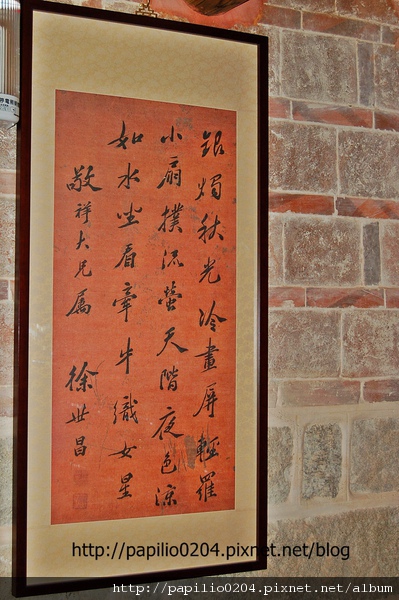 銀燭秋光冷畫屏輕羅
小扇撲流螢天階夜色涼
如水坐看牽牛織女星
敬祥大兄屬 徐世昌
http://papilio0204.pixnet.net/blog
http://papilio0204.pixnet.net/album